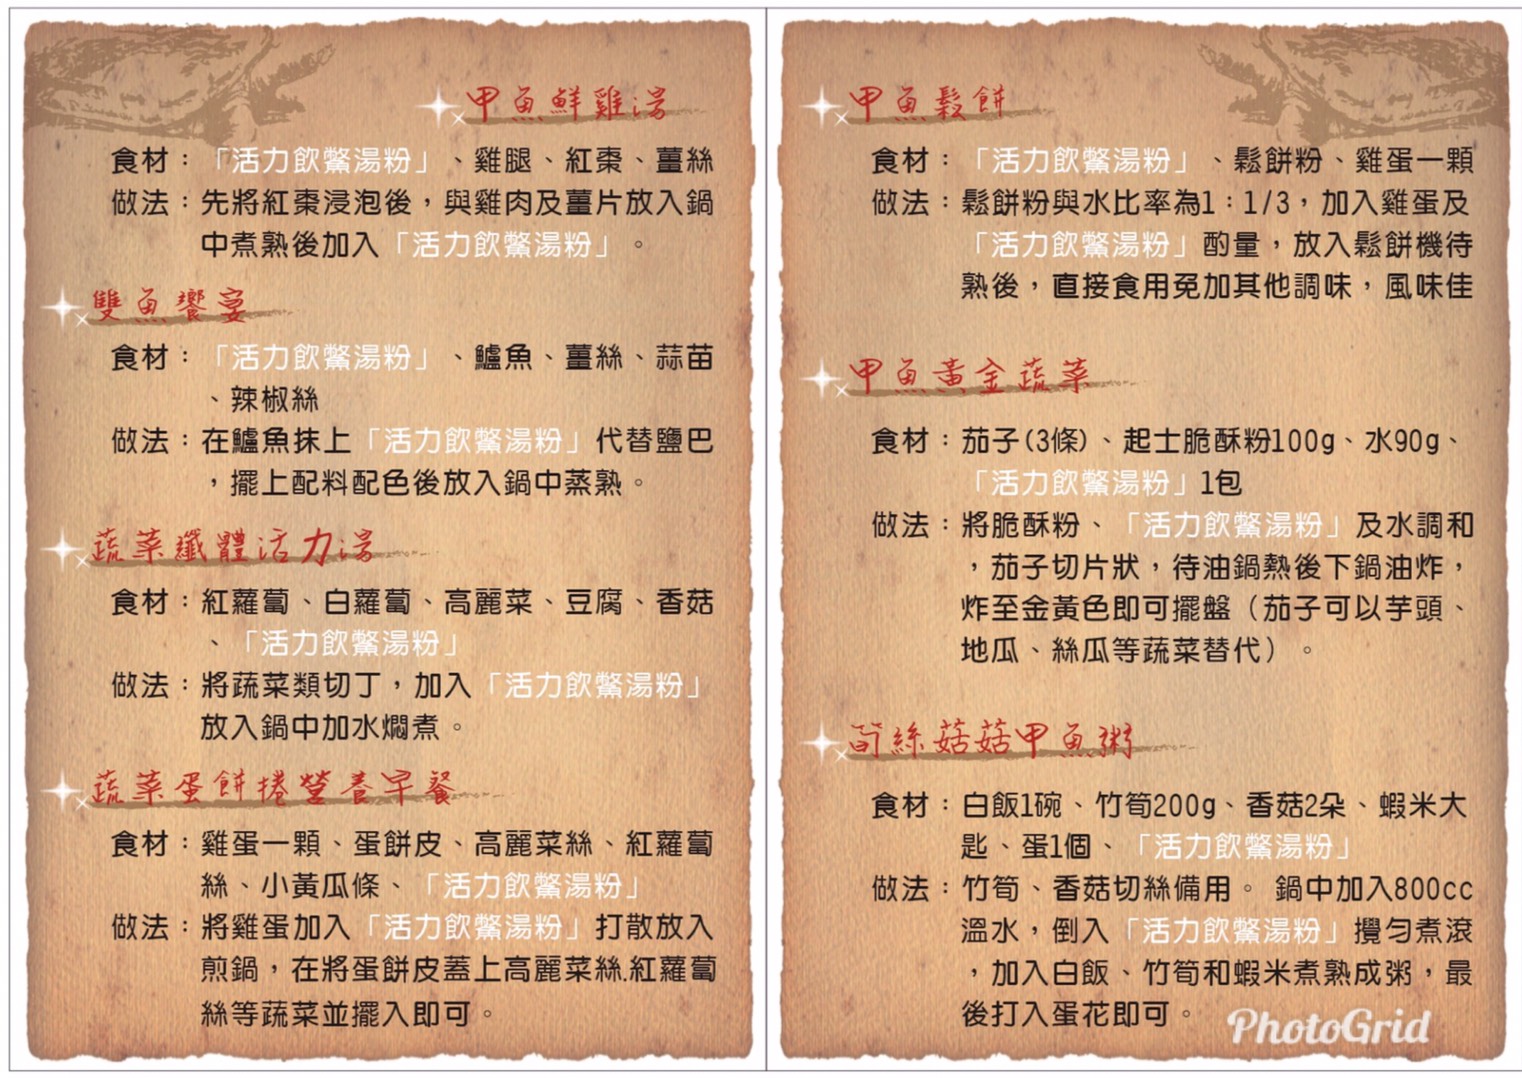 甲魚鮮雞湯
食材：「活力飲鱉湯粉」、雞腿、紅棗、薑絲
做法：先將紅棗浸泡後，與雞肉及薑片放入鍋
中煮熟後加入「活力飲鱉湯粉」。
雙魚饗宴
食材：「活力飲鱉湯粉」、鱸魚、薑絲、蒜苗
、辣椒絲
做法：在鱸魚抹上「活力飲鱉湯粉」代替鹽巴
，擺上配料配色後放入鍋中蒸熟。
蔬菜纖體活力湯
食材：紅蘿蔔、白蘿蔔、高麗菜、豆腐、香菇
、「活力飲鱉湯粉」
做法：將蔬菜類切丁，加入「活力飲鱉湯粉」
放入鍋中加水燜煮。
蔬菜蛋餅捲營養早餐
食材：雞蛋一顆、蛋餅皮、高麗菜絲、紅蘿蔔
絲、小黃瓜條、「活力飲鱉湯粉」
做法：將雞蛋加入「活力飲鱉湯粉」打散放入
煎鍋，在將蛋餅皮蓋上高麗菜絲.紅蘿蔔
絲等蔬菜並擺入即可。
甲魚鬆餅
食材：「活力飲鱉湯粉」、鬆餅粉、雞蛋一顆
做法：鬆餅粉與水比率為1：1/3，加入雞蛋及
「活力飲鱉湯粉」酌量，放入鬆餅機待
熟後，直接食用免加其他調味，風味佳
甲魚黃金蔬菜
食材：茄子(3條)、起士脆酥粉100g、水90g、
「活力飲鱉湯粉」1包
做法：將脆酥粉、「活力飲鱉湯粉」及水調和
，茄子切片狀，待油鍋熱後下鍋油炸，
炸至金黃色即可擺盤（茄子可以芋頭、
地瓜、絲瓜等蔬菜替代）。
筍絲菇菇甲魚粥
食材：白飯1碗、竹筍200g、香菇2朵、蝦米大
匙、蛋1個、「活力飲鱉湯粉」
做法：竹筍、香菇切絲備用。 鍋中加入800cc
溫水，倒入「活力飲鱉湯粉」攪勻煮滾
，加入白飯、竹筍和蝦米煮熟成粥，最
後打入蛋花即可。
PhotoGrid